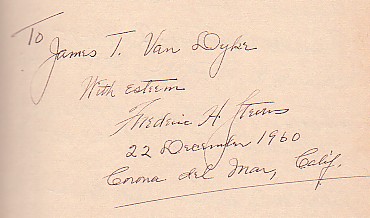 To
James T. Van Dyke
With esteem
Frederic H. Sterns
22 December 1960
Corona del Mar, Calif.